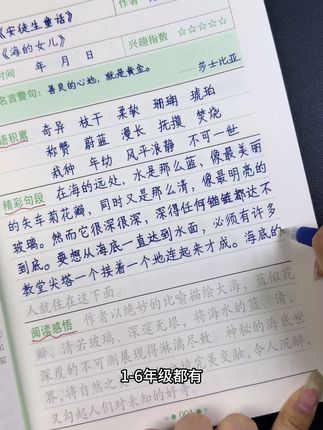 《安徒生童话》
《海的女儿》
时间 年 月 日 兴趣指数 ☆☆☆☆☆
名言警句：善良的心地，就是黄金。
——莎士比亚
语积累 奇异 枝干 柔软 珊瑚 琥珀
称赞 蔚蓝 漫长 抚摸 焚烧
栽种 年幼 风平浪静 不可一世
精彩句段 在海的远处，水是那么蓝，像最美丽
的矢车菊花瓣，同时又是那么清，像最明亮的
玻璃。然而它很深很深，深得任何锚链都达不
到底。要想从海底一直达到水面，必须有许多
教堂尖塔一个接着一个地连起来才成。海底的
人就住在这下面。
阅读感悟 作者以绝妙的比喻描绘大海，蓝似花
瓣、清若玻璃、深邃无垠，将海水的蓝、清、
深度的不可测展现得淋漓尽致，神秘的海底世
界，将自然之 完美交融，令人沉醉，
又勾起人们对未知的好奇。
1-6年级都有
001